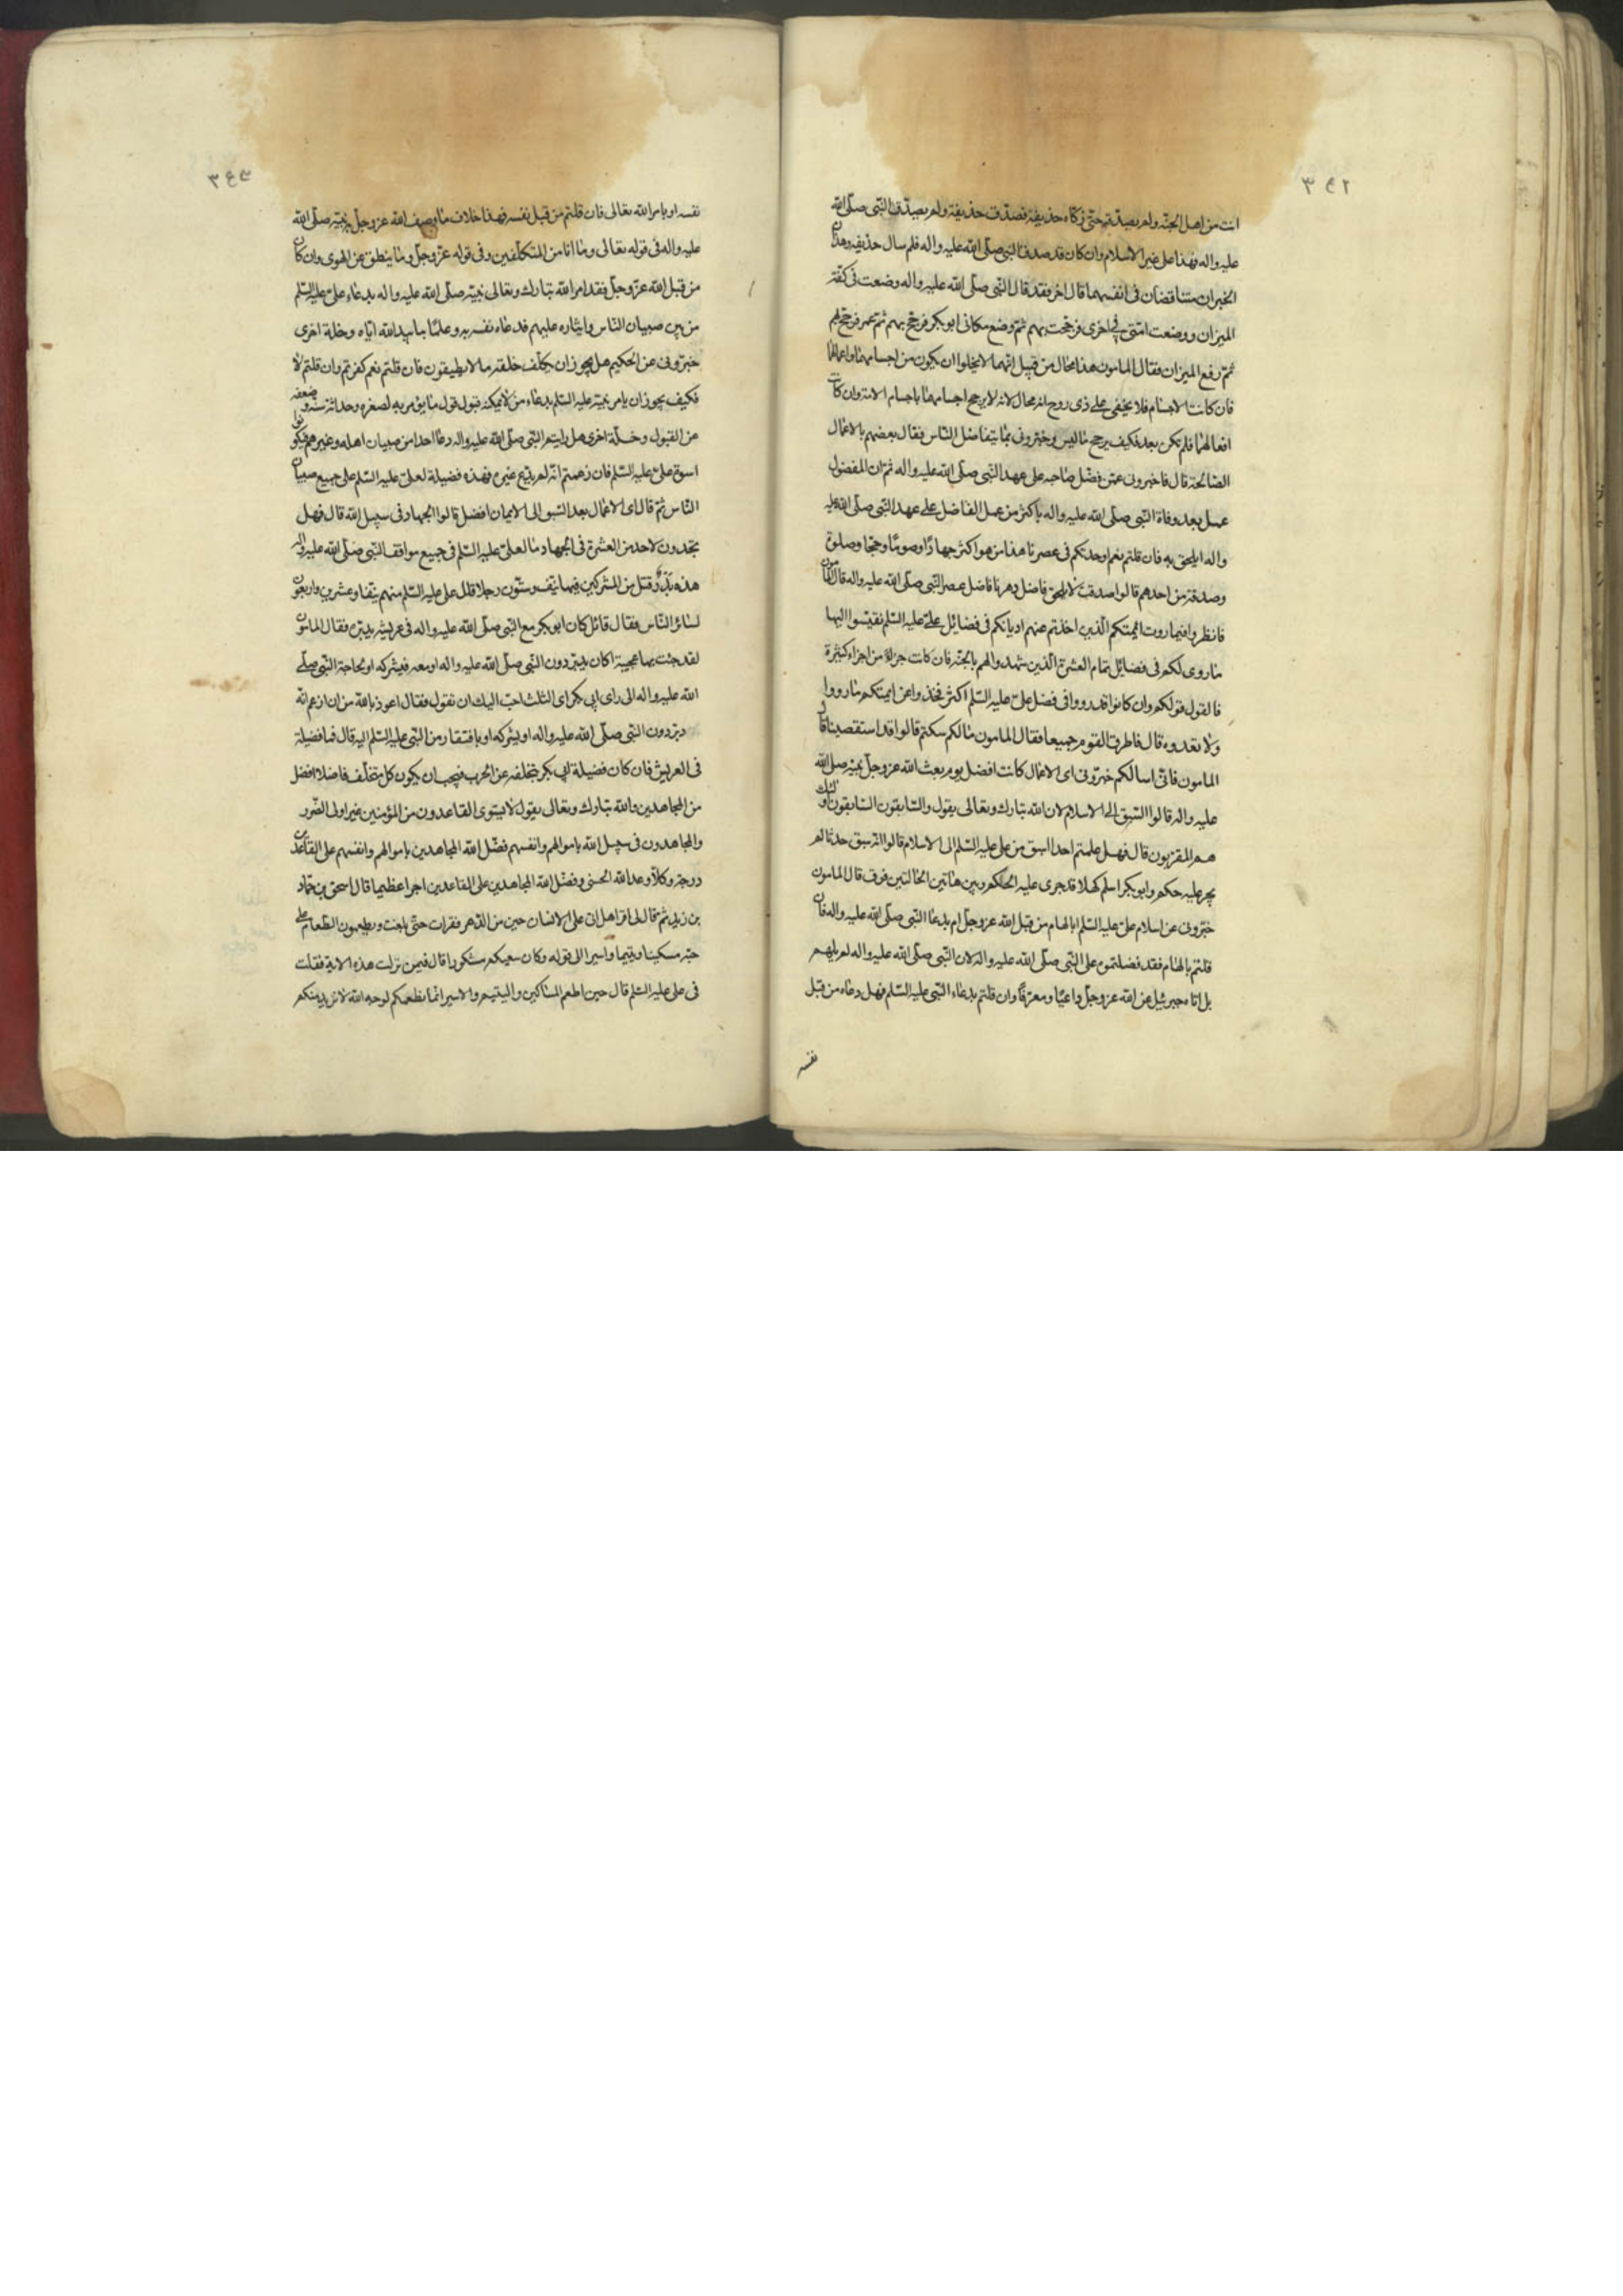 ٣٤٢
انت من اهل الجنة ولم يصدقه حتى زكاه حذيفة فصدق حذيفة ولم يصدق النبي صلى الله
عليه واله فهذا على غير الاسلام وان كان قد صدق النبي صلى الله عليه واله فلم سال حذيفه وهذان
الخبران متناقضان في انفسهما قال اخر فقد قال النبي صلى الله عليه واله وضعت في كفة
الميزان ووضعت امتي في اخرى فرجحت بهم ثم وضع مكاني ابو بكر فرجح بهم ثم عمر فرجح بهم
ثم رفع الميزان فقال المامون هذا محال من قبل انهما لا يخلوا ان يكون من اجسامهما واعمالهما
فان كانت الاجسام فلا يخفى على ذى روح انه محال لانه لا يرجح اجسامهما باجسام الامة وان كانت
افعالهما فلم تكن بعد فكيف يرجح ما ليس وخبروني بما يتفاضل الناس فقال بعضهم بالاعمال
الصالحة قال فاخبروني عمن فضل صاحبه على عهد النبي صلى الله عليه واله ثم ان المفضول
عمل بعد وفاة النبي صلى الله عليه واله باكثر من عمل الفاضل على عهد النبي صلى الله عليه
واله ايلحق به فان قلتم نعم اوجدتكم في عصرنا هذا من هو اكثر جهادا وصوما وحجا وصلوة
وصدقة من احدهم قالوا صدقت لا يلحق فاضل دهرنا فاضل عصر النبي صلى الله عليه واله قال المامون
فانظروا فيما روت ائمتكم الذين اخذتم عنهم اديانكم في فضائل علي عليه السلم نقيسوا اليها
ما روى لكم في فضايل تمام العشرة الذين شهدوا لهم بالجنة فان كانت جزاء من اجزاء كثيرة
فالقول قولكم وان كانوا قد رووا في فضل علي عليه السلم اكثر فخذوا عن ايمتكم ما رووا
ولا تعدوه قال فاطرق القوم جميعا فقال المامون ما لكم سكتم قالوا قد استقصينا قال
المامون فاني اسالكم خبروني اى الاعمال كانت افضل يوم بعث الله عز وجل نبيه صلى الله
عليه واله قالوا السبق الى الاسلام لان الله تبارك وتعالى يقول والسابقون السابقون اولئك
هم المقربون قال فهل علمتم احدا اسبق من علي عليه السلم الى الاسلام قالوا انه سبق حدثا لم
يجر عليه حكم وابو بكر اسلم كهلا قد جرى عليه الحكم وبين هاتين الحالتين فرق قال المامون
خبروني عن اسلام علي عليه السلم ابالهام من قبل الله عز وجل ام بدعا النبي صلى الله عليه واله فان
قلتم بالهام فقد فضلتموه على النبي صلى الله عليه واله لان النبي صلى الله عليه واله لم يلهم
بل اتاه جبرئيل عن الله عز وجل داعيا ومعرفا وان قلتم بدعاء النبي عليه السلم فهل دعاه من قبل
نفسه
٣٤٣
نفسه او بامر الله تعالى فان قلتم من قبل نفسه فهذا خلاف ما وصف الله عز وجل به نبيه صلى الله
عليه واله في قوله تعالى وما انا من المتكلفين وفي قوله عز وجل وما ينطق عن الهوى وان كان
من قبل الله عز وجل فقد امر الله تبارك وتعالى نبيه صلى الله عليه واله بدعاء علي عليه السلم
من بين صبيان الناس وايثاره عليهم فدعاه نفسه به وعلما بتاييد الله اياه وخلة اخرى
خبروني عن الحكيم هل يجوز ان يكلف خلقه ما لا يطيقون فان قلتم نعم كفرتم وان قلتم لا
فكيف يجوز ان يامر نبيه عليه السلم بدعاء من لا يمكنه قبول قول ما يؤمر به لصغره وحداثة سنه وضعفه
عن القبول وخلة اخرى هل رايتم النبي صلى الله عليه واله دعا احدا من صبيان اهله وغيرهم فيكونوا
اسوة علي عليه السلم فان زعمتم انه لم يدع غيره فهذه فضيلة لعلي عليه السلم على جميع صبيان
الناس ثم قال اى الاعمال بعد السبق الى الايمان افضل قالوا الجهاد في سبيل الله قال فهل
تجدون لاحد من العشرة في الجهاد ما لعلي عليه السلم في جميع مواقف النبي صلى الله عليه واله
هذه بدر قتل من المشركين فيها نيف وستون رجلا قتل علي عليه السلم منهم نيفا وعشرين واربعون
لسائر الناس فقال قائل كان ابو بكر مع النبي صلى الله عليه واله في عريشه يدبره فقال المامون
لقد جئت بها عجيبة اكان يدبر دون النبي صلى الله عليه واله او معه فيشركه او لحاجة النبي صلى
الله عليه واله الى راى ابي بكر اى الثلث احب اليك ان تقول فقال اعوذ بالله من ان ازعم انه
دبر دون النبي صلى الله عليه واله او يشركه او بافتقار من النبي عليه السلم اليه قال فما فضيلة
في العريش فان كان فضيلة ابي بكر بتخلفه عن الحرب فيجب ان يكون كل متخلف فاضلا افضل
من المجاهدين والله تبارك وتعالى يقول لا يستوى القاعدون من المؤمنين غير اولى الضرر
والمجاهدون في سبيل الله باموالهم وانفسهم فضل الله المجاهدين باموالهم وانفسهم على القاعدين
درجة وكلا وعد الله الحسنى وفضل الله المجاهدين على القاعدين اجرا عظيما قال اسحق بن حماد
بن زيد ثم قال لي اقرا هل اتى على الانسان حين من الدهر فقرات حتى بلغت ويطعمون الطعام على
حبه مسكينا ويتيما واسيرا الى قوله وكان سعيكم مشكورا قال فيمن نزلت هذه الاية فقلت
في علي عليه السلم قال حين اطعم المساكين واليتيم والاسير انما نطعمكم لوجه الله لا نريد منكم